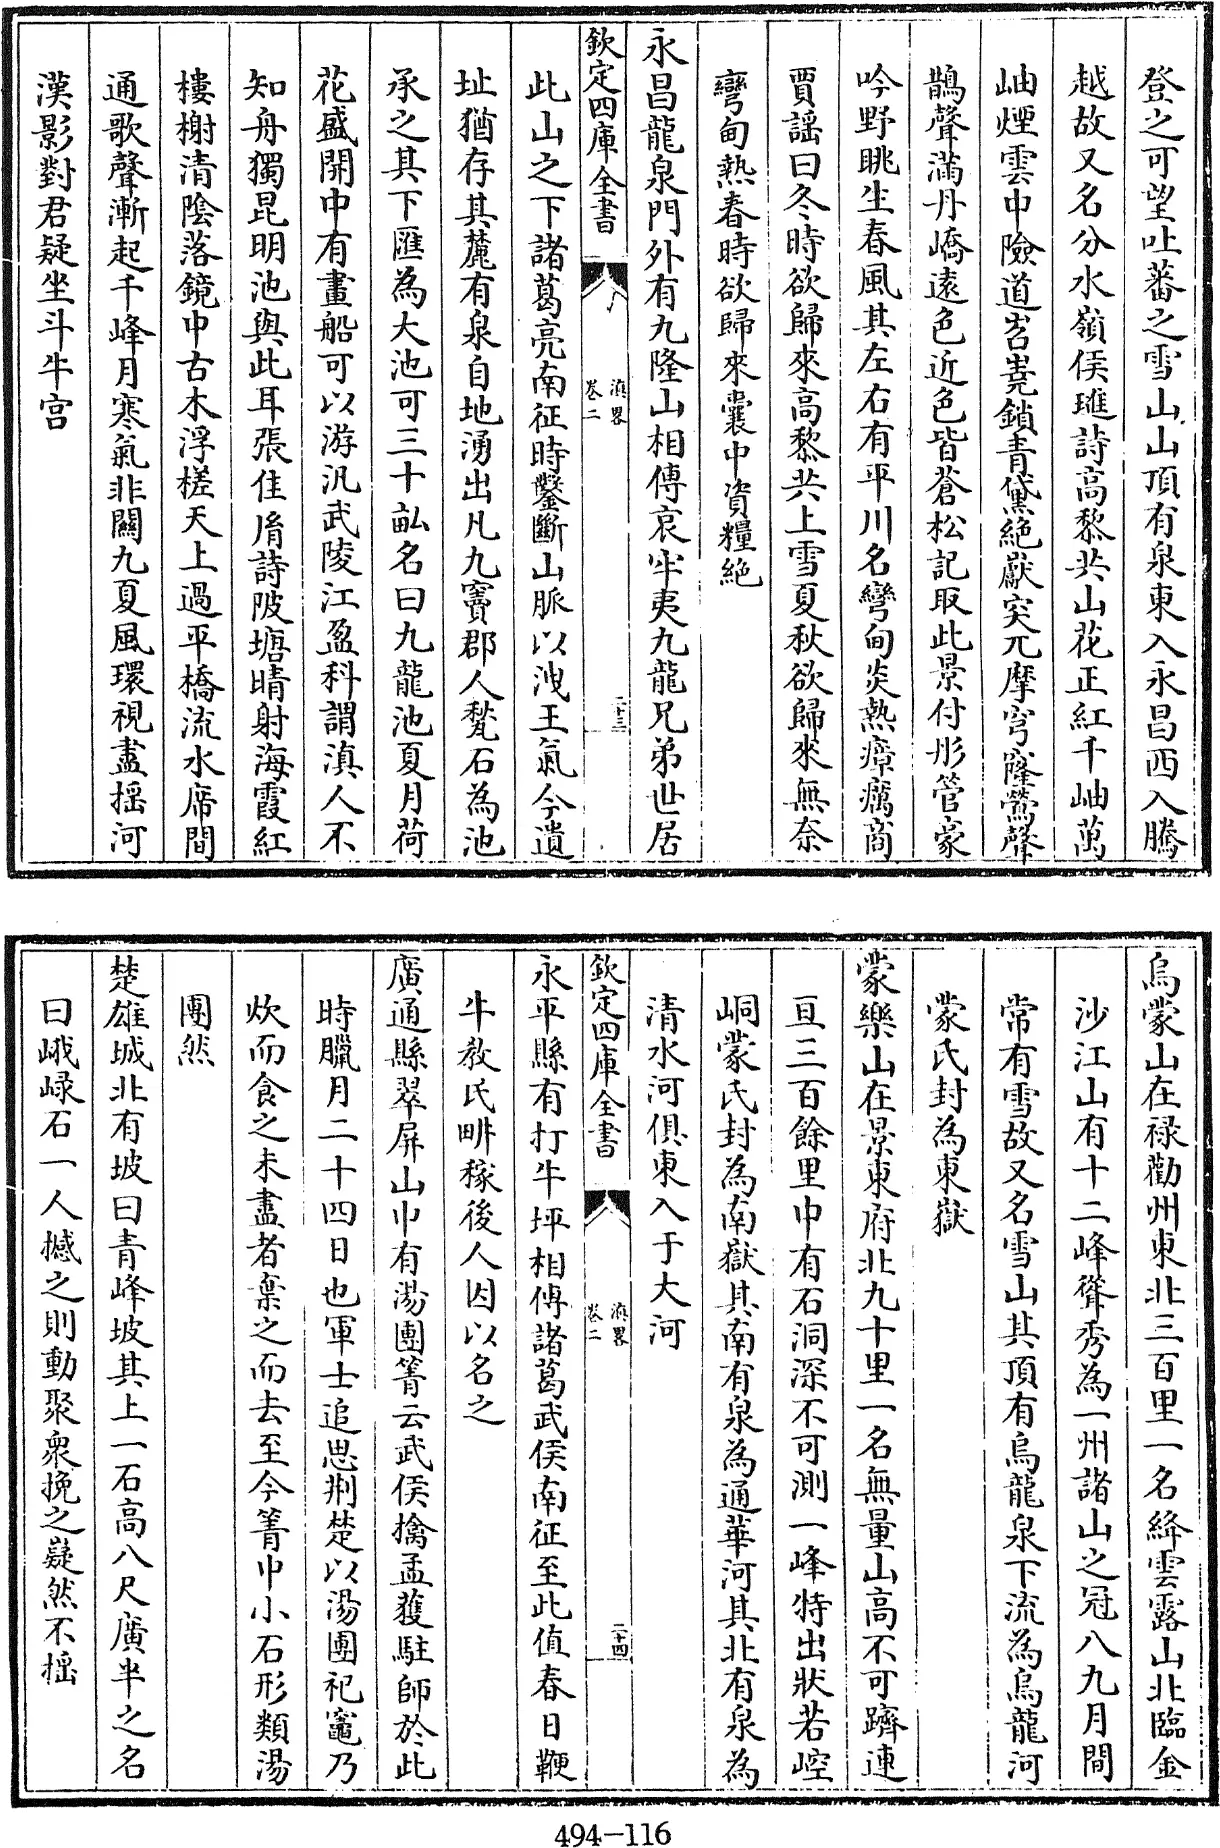 登之可望吐蕃之雪山山頂有泉東入永昌西入騰
越故又名分水嶺侯璡詩高黎共山花正紅千岫萬
岫煙雲中險道岧嶤鎖青黛絶巘突兀摩穹窿鶯聲
鵲聲滿丹嶠遠色近色皆蒼松記取此景付彤管豪
吟野眺生春風其左右有平川名彎甸炎熱瘴癘商
賈謡曰冬時欲歸來高黎共上雪夏秋欲歸來無奈
彎甸熱春時欲歸來囊中資糧絶
永昌龍泉門外有九隆山相傳哀牢夷九龍兄弟世居
欽定四庫全書
滇畧
卷二
二十三
此山之下諸葛亮南征時鑿斷山脈以洩王氣今遺
址猶存其麓有泉自地湧出凡九竇郡人甃石為池
承之其下匯為大池可三十畝名曰九龍池夏月荷
花盛開中有畫船可以游汎武陵江盈科謂滇人不
知舟獨昆明池與此耳張佳胤詩陂塘晴射海霞紅
樓榭清陰落鏡中古木浮槎天上過平橋流水席間
通歌聲漸起千峰月寒氣非關九夏風環視盡揺河
漢影對君疑坐斗牛宫
烏蒙山在禄勸州東北三百里一名絳雲露山北臨金
沙江山有十二峰聳秀為一州諸山之冠八九月間
常有雪故又名雪山其頂有烏龍泉下流為烏龍河
蒙氏封為東嶽
蒙樂山在景東府北九十里一名無量山高不可躋連
亘三百餘里中有石洞深不可測一峰特出狀若崆
峒蒙氏封為南嶽其南有泉為通華河其北有泉為
清水河俱東入于大河
欽定四庫全書
滇畧
卷二
二十四
永平縣有打牛坪相傳諸葛武侯南征至此值春日鞭
牛教民畊稼後人因以名之
廣通縣翠屏山中有湯團箐云武侯擒孟獲駐師於此
時臘月二十四日也軍士追思荆楚以湯團祀竈乃
炊而食之未盡者棄之而去至今箐中小石形類湯
團然
楚雄城北有坡曰青峰坡其上一石高八尺廣半之名
曰峨碌石一人撼之則動聚衆挽之嶷然不揺
494-116